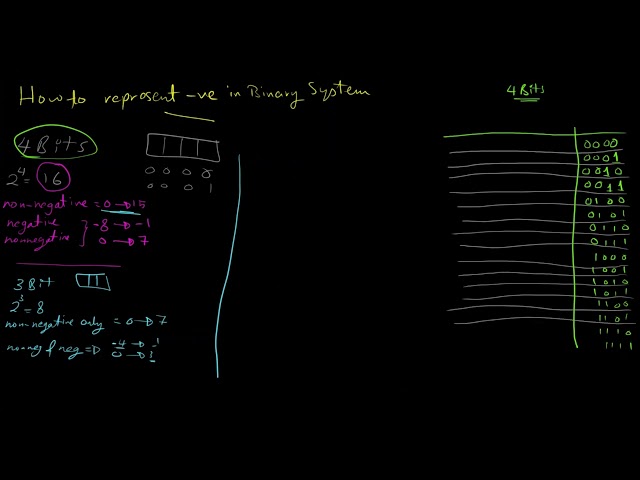 How to represent -ve in Binary System
4 Bits
4 Bits
0 0 0 0
2^4 = 16
0 0 0 1
non-negative = 0 → 15
negative } -8 → -1
nonnegative } 0 → 7
3 Bit
2^3 = 8
non-negative only = 0 → 7
-4 → -1
0 →
0000
0001
0010
0011
0100
0101
0110
0111
1000
1001
1010
1011
1100
1101
1110
1111